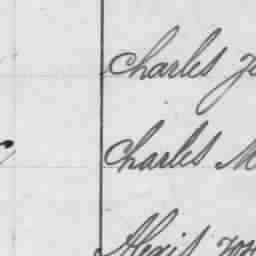 Charles
Charles M
Alexis